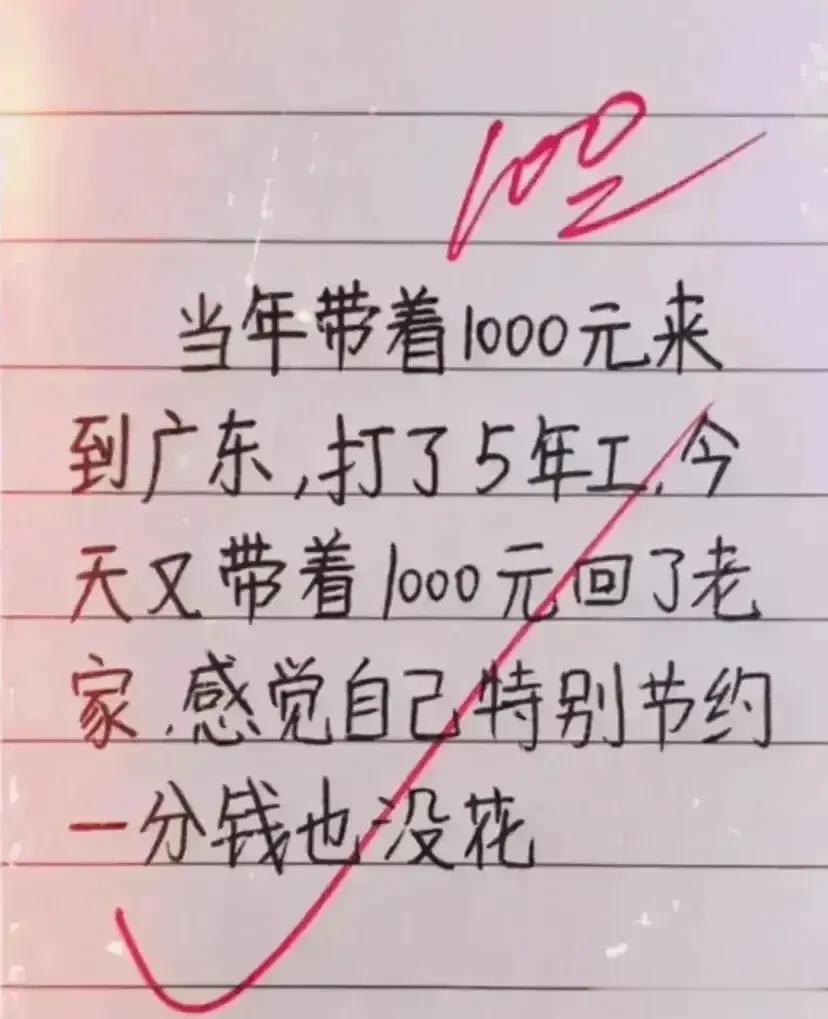 100
当年带着1000元来
到广东,打了5年工,今
天又带着1000元回了老
家,感觉自己特别节约
一分钱也没花